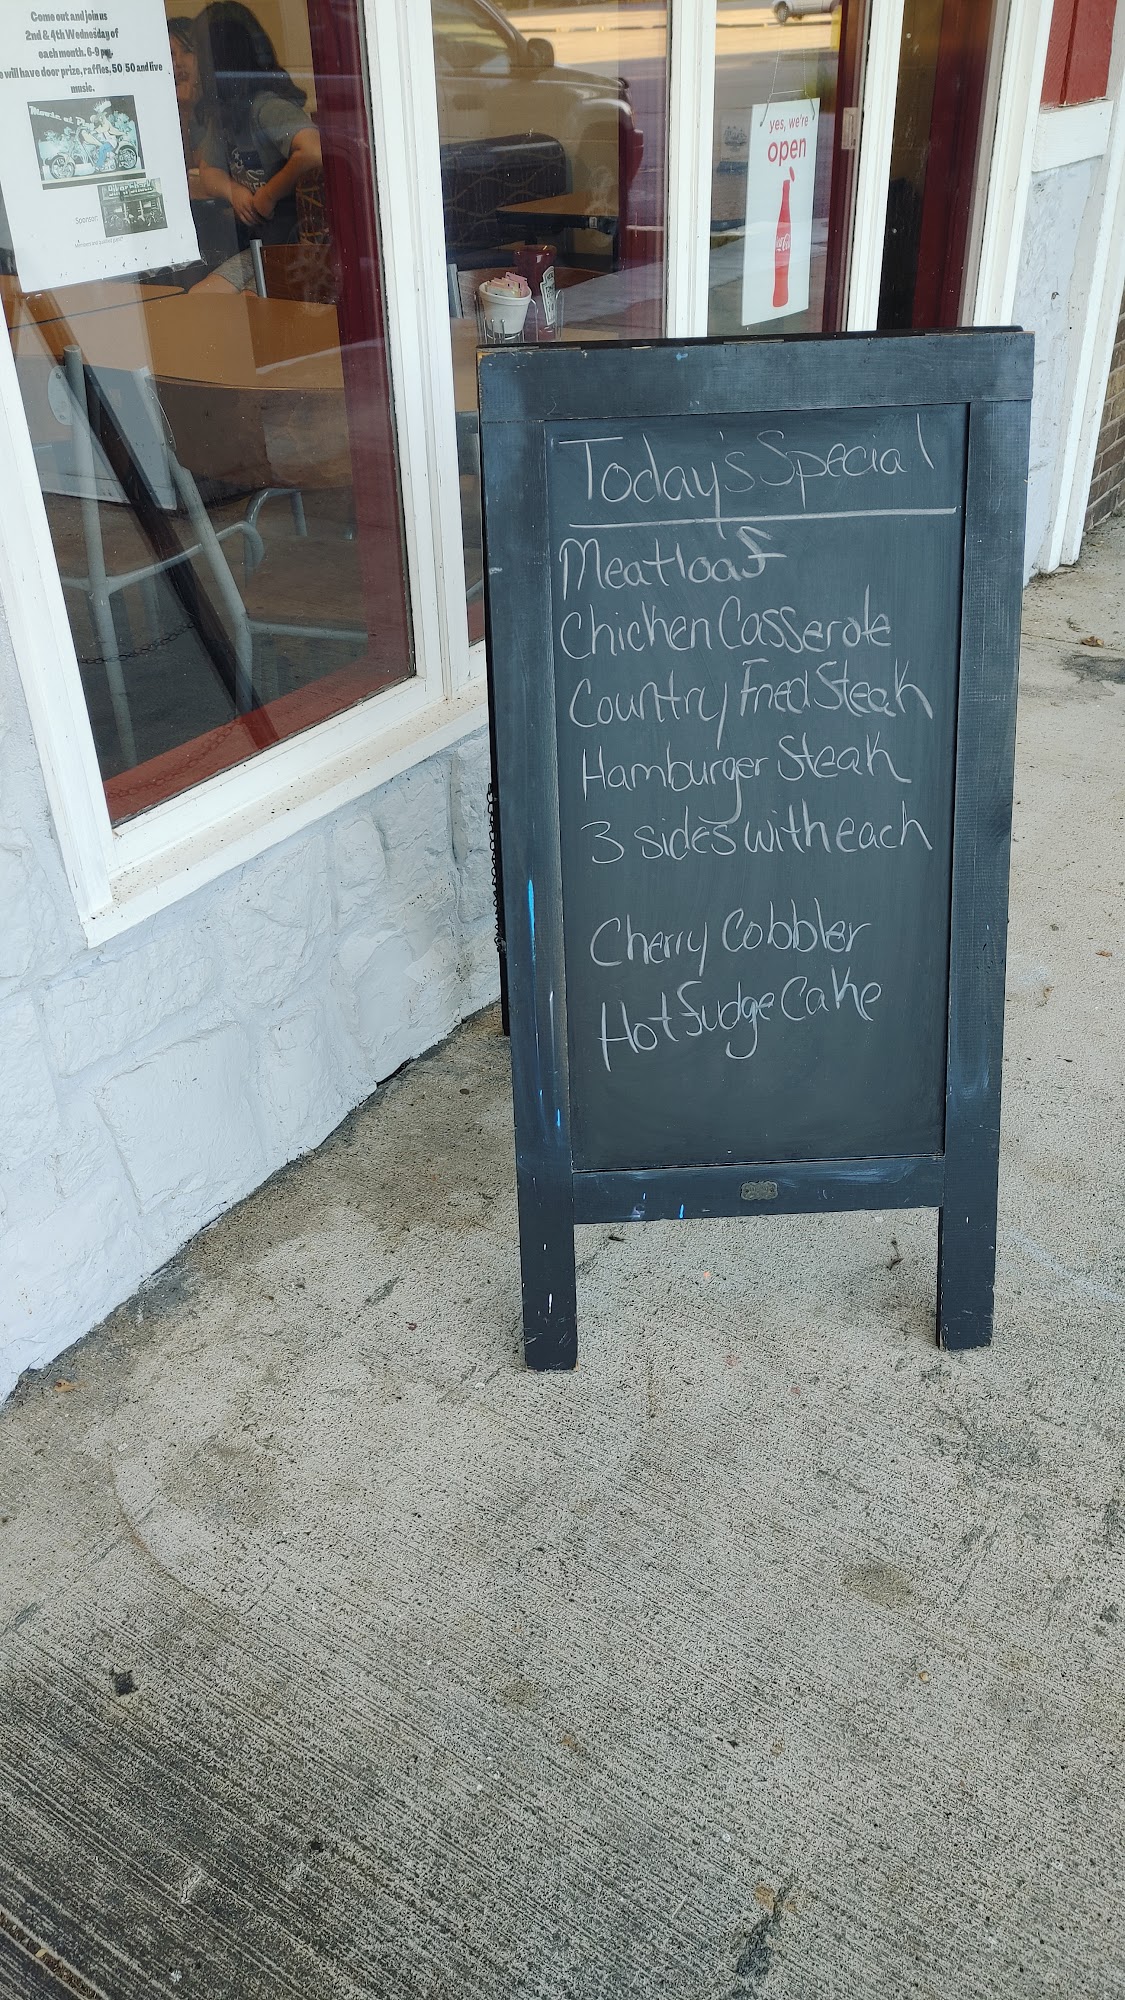 Come out and join us
2nd & 4th Wednesday of
each month. 6-9 pm.
will have door prize, raffles, 50/50 and live
music.
Sponsor:
yes, we're
open
Coca-Cola
Today's Special
Meatloaf
Chicken Casserole
Country Fried Steak
Hamburger Steak
3 sides with each
Cherry Cobbler
Hot Fudge Cake